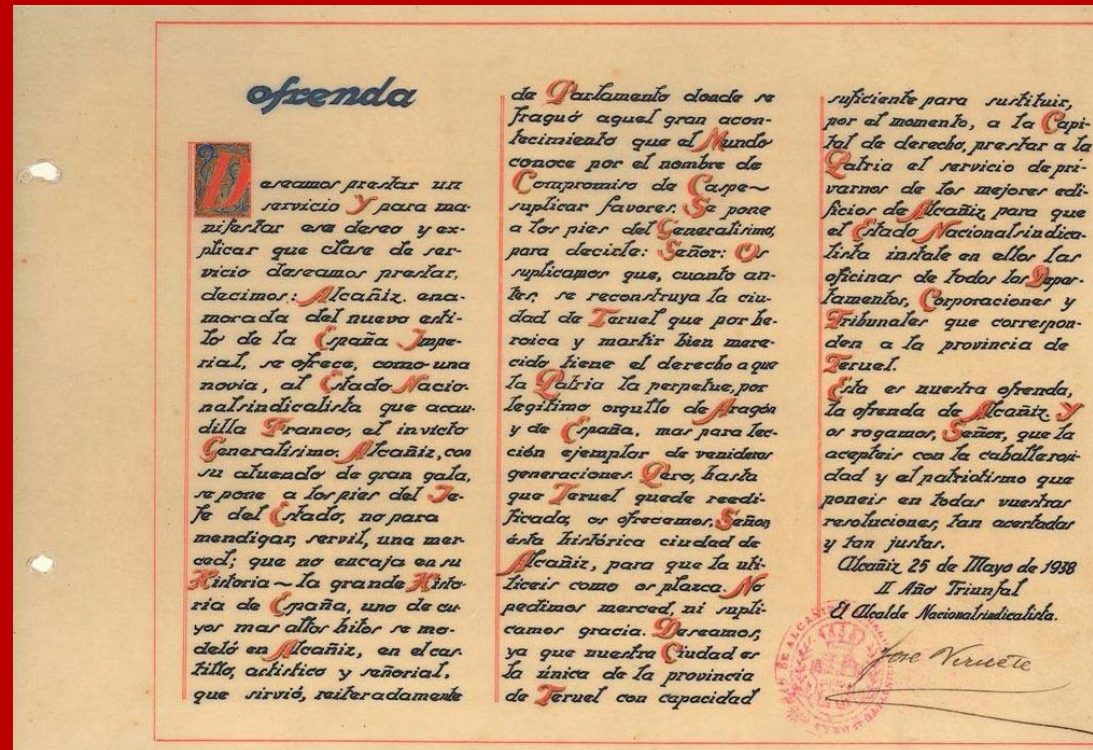 ofrenda
Deseamos prestar un
servicio Y para ma-
nifestar ese deseo y ex-
plicar que clase de ser-
vicio deseamos prestar,
decimos: Alcañiz, ena-
morada del nuevo esti-
lo de la España Impe-
rial, se ofrece, como una
novia, al Estado Nacio-
nalsindicalista que acau-
dilla Franco, el invicto
Generalísimo. Alcañiz, con
su atuendo de gran gala,
se pone a los pies del Je-
fe del Estado, no para
mendigar, servil, una mer-
ced; que no encaja en su
Historia ~ la grande Histo-
ria de España, uno de cu-
yos mas altos hitos se mo-
deló en Alcañiz, en el cas-
tillo, artístico y señorial,
que sirvió, reiteradamente
de Parlamento donde se
fraguó aquel gran acon-
tecimiento que el Mundo
conoce por el nombre de
Compromiso de Caspe ~
suplicar favores. Se pone
a los pies del Generalísimo,
para decirle: Señor: Os
suplicamos que, cuanto an-
tes, se reconstruya la ciu-
dad de Teruel que por he-
roica y martir bien mere-
cido tiene el derecho a que
la Patria la perpetue, por
legítimo orgullo de Aragón
y de España, mas para lec-
ción ejemplar de venideras
generaciones. Pero, hasta
que Teruel quede reedi-
ficada, os ofrecemos, Señor,
ésta histórica ciudad de
Alcañiz, para que la uti-
liceis como os plazca. No
pedimos merced, ni supli-
camos gracia. Deseamos,
ya que nuestra Ciudad es
la única de la provincia
de Teruel con capacidad
suficiente para sustituir,
por el momento, a la Capi-
tal de derecho, prestar a la
Patria el servicio de pri-
varnos de los mejores edi-
ficios de Alcañiz, para que
el Estado Nacionalsindica-
lista instale en ellos las
oficinas de todos los Depar-
tamentos, Corporaciones y
Tribunales que correspon-
den a la provincia de
Teruel.
Esta es nuestra ofrenda,
la ofrenda de Alcañiz. Y
os rogamos, Señor, que la
acepteis con la caballerosi-
dad y el patriotismo que
poneis en todas vuestras
resoluciones, tan acertadas
y tan justas.
Alcañiz 25 de Mayo de 1938
II Año Triunfal
El Alcalde Nacionalsindicalista.
José